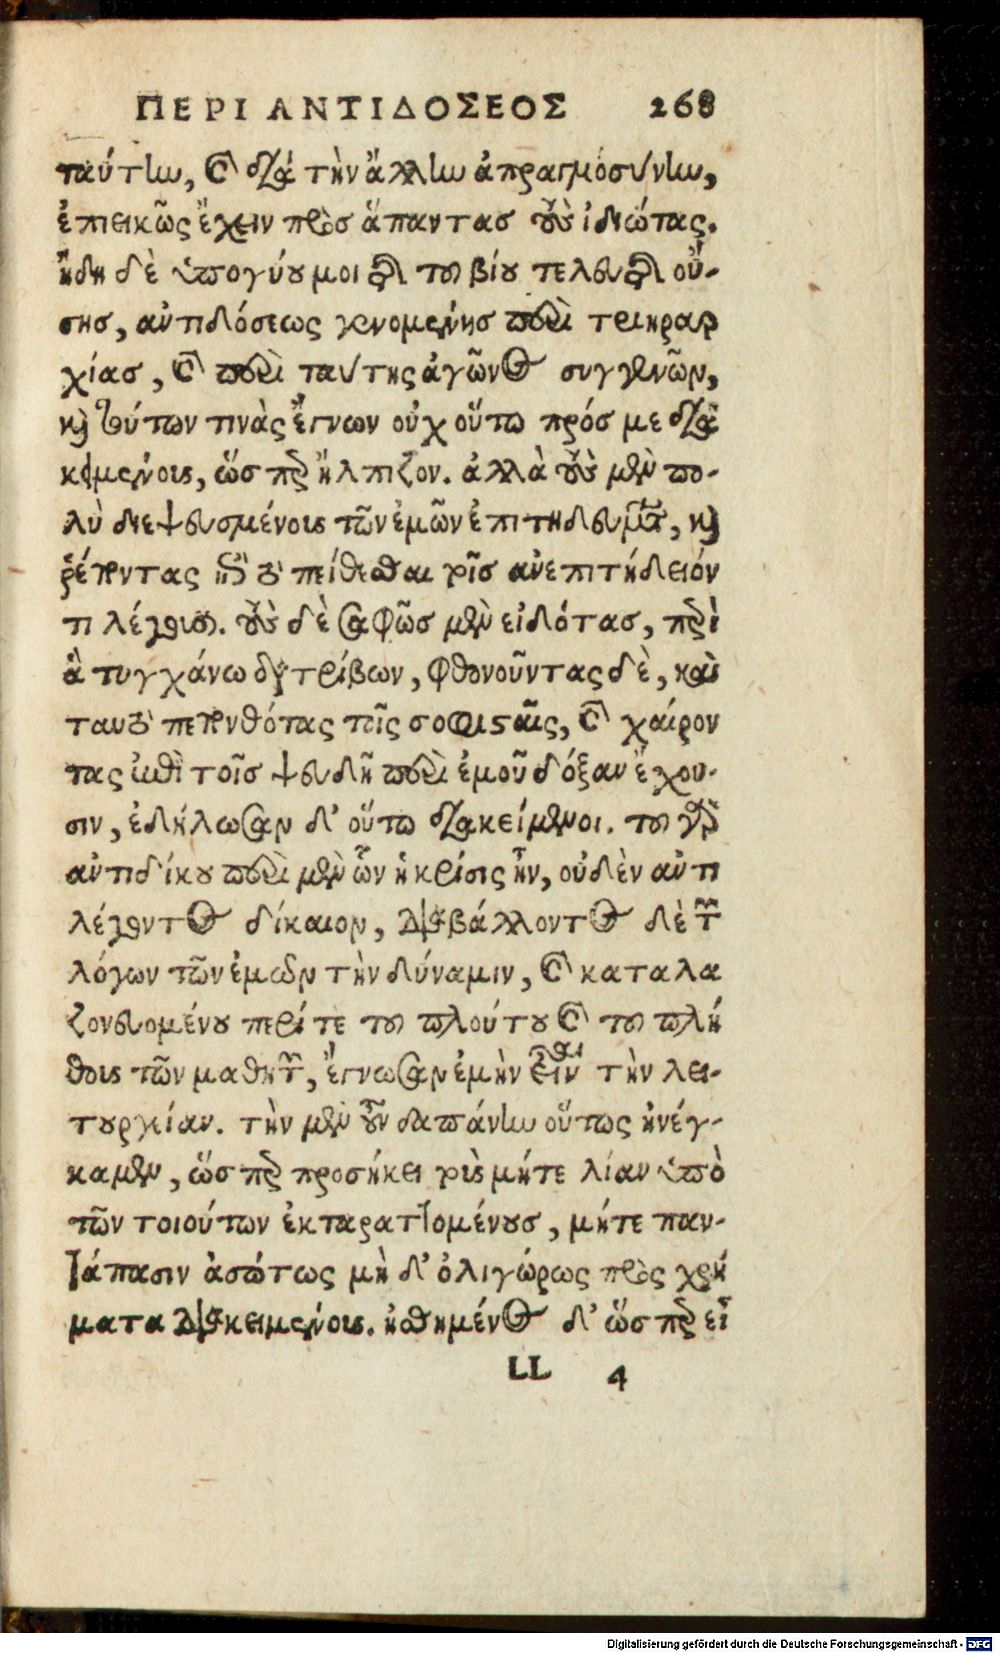 ΠΕΡΙ ΑΝΤΙΔΟΣΕΟΣ 268
ταύτην, καὶ διὰ τὴν ἄλλην ἀπραγμοσύνην,
ἐπιεικῶς ἔχειν πρὸς ἅπαντας τοὺς ἰδιώτας.
ἤδη δὲ ὑπογύου μοι τῆς τοῦ βίου τελευτῆς οὔ-
σης, ἀντιδόσεως γενομένης περὶ τριηραρ
χίας, καὶ περὶ ταύτης ἀγῶνος συγγενῶν,
καὶ τούτων τινὰς ἔγνων οὐχ οὕτω πρός με δια
κειμένους, ὥσπερ ἤλπιζον. ἀλλὰ τοὺς μὲν πο-
λὺ διεψευσμένους τῶν ἐμῶν ἐπιτηδευμάτων, καὶ
ῥέποντας ἐπὶ τὸ πείθεσθαι τοῖς ἀνεπιτήδειόν
τι λέγουσι. τοὺς δὲ σαφῶς μὲν εἰδότας, περὶ
ἃ τυγχάνω διατρίβων, φθονοῦντας δὲ, καὶ
ταυτὸ πεπονθότας τοῖς σοφισταῖς, καὶ χαίρον
τας ἐπὶ τοῖς ψευδῆ περὶ ἐμοῦ δόξαν ἔχου-
σιν, ἐδήλωσαν δ' οὕτω διακείμενοι. τοῦ γὰρ
ἀντιδίκου περὶ μὲν ὧν ἡ κρίσις ἦν, οὐδὲν ἀντι
λέγοντος δίκαιον, διαβάλλοντος δὲ τῶν
λόγων τῶν ἐμῶν τὴν δύναμιν, καὶ καταλα
ζονευομένου περί τε τοῦ πλούτου καὶ τοῦ πλή
θους τῶν μαθητῶν, ἔγνωσαν ἐμὴν εἶναι τὴν λει-
τουργίαν. τὴν μὲν οὖν δαπάνην οὕτως ἠνέγ-
καμεν, ὥσπερ προσήκει τοὺς μήτε λίαν ὑπὸ
τῶν τοιούτων ἐκταραττομένους, μήτε παν-
τάπασιν ἀσώτως μὴ δ' ὀλιγώρως πρὸς χρή
ματα διακειμένους. ᾐσθημένος δ' ὥσπερ εἶ
LL 4
Digitalisierung gefördert durch die Deutsche Forschungsgemeinschaft - DFG